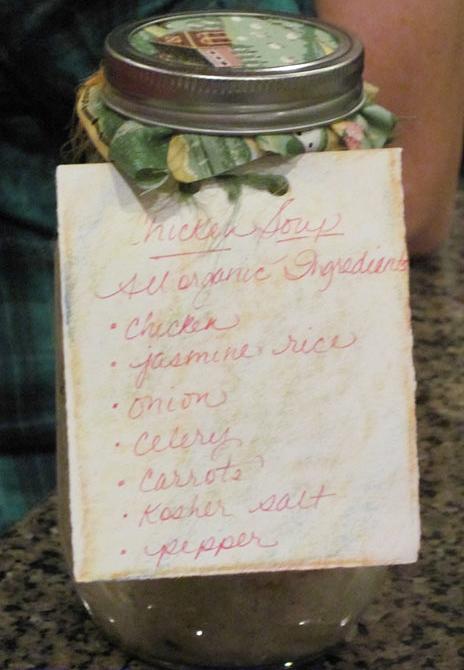 Chicken Soup
All organic Ingredients
• Chicken
• jasmine rice
• onion
• celery
• carrots
• Kosher salt
• pepper